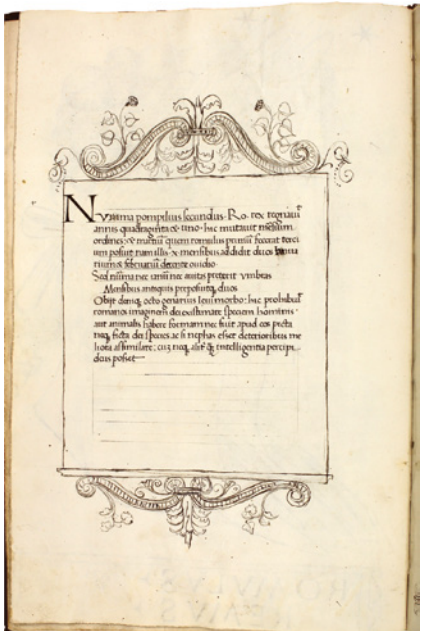 Numma pompilius secundus. Ro. rex regnauit
annis quadraginta & uno. hic mutauit mensium
ordines. & martiū quem romulus primū fecerat terci
um posuit nam illis x mensibus addidit duos
& februariū dicente ouidio
Sed numa nec ianū nec auitas preterit vmbras
Mensibus antiquis preposuitq, duos
Obijt deniq, octogenarius leui morbo: hic prohibuit
romanos imaginem dei existimare speciem hominis
aut animalis habere formam nec fuit apud eos picta
neq, ficta dei species ac si nephas esset deterioribus me
liora assimilare: neq, intelligentia percipi
deus posset